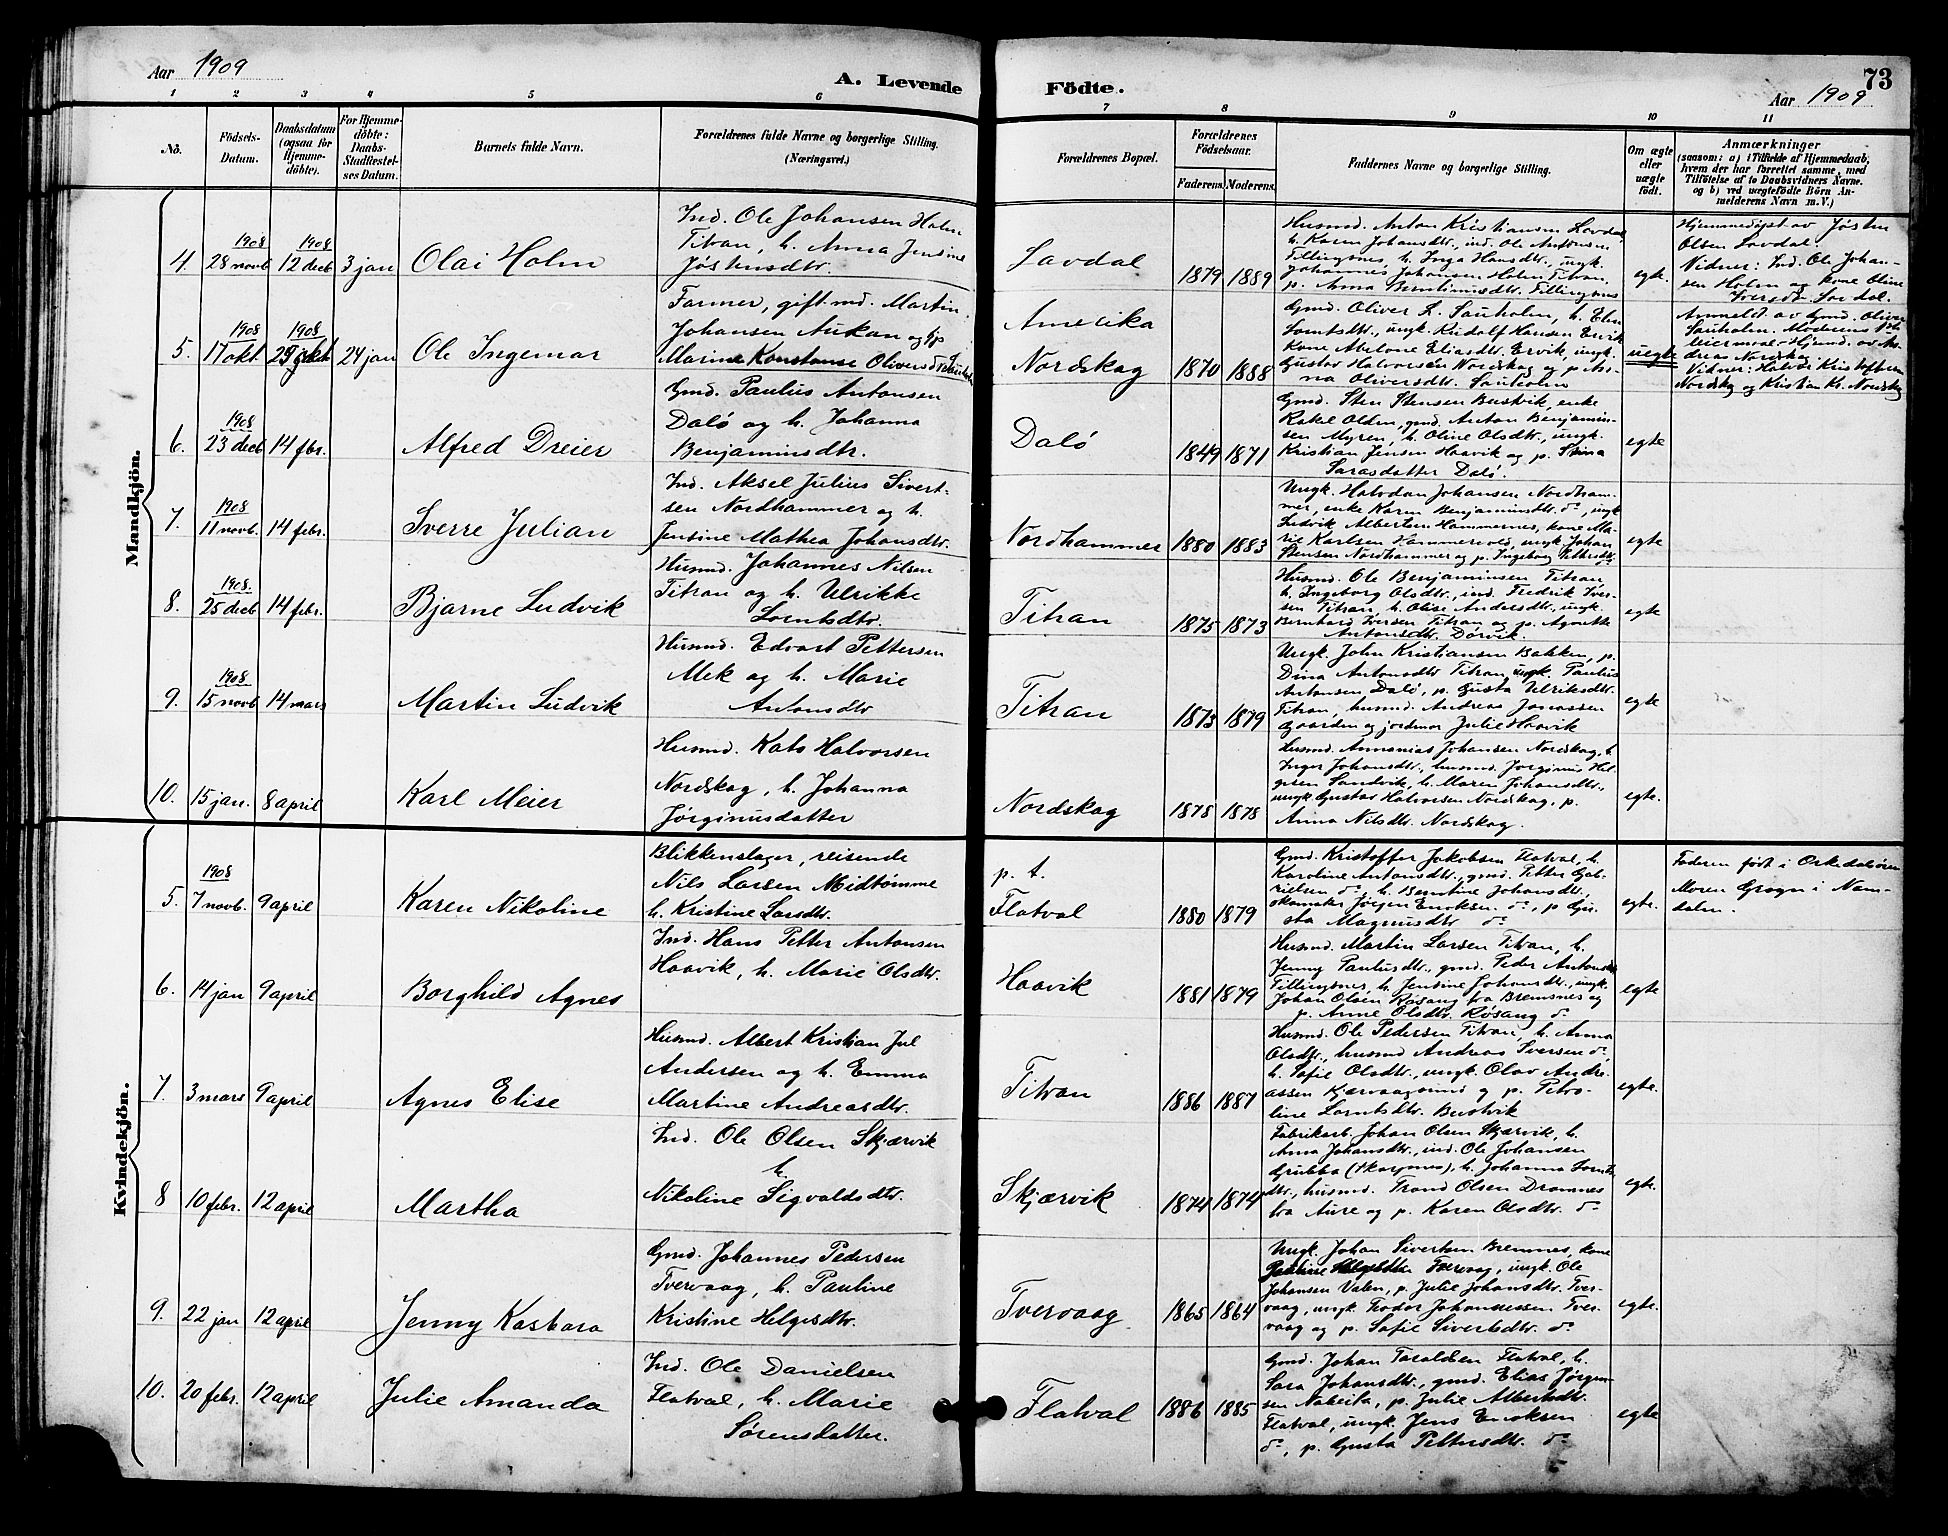 Aar 1909
A. Levende
Födte.
73
Aar 1909
1 2 3 4 5 6 7 8 9 10 11
No.
Födsels-Datum.
Daabsdatum (ogsaa for Hjemmedöbte).
For Hjemmedöbte: Daabs-Stadfæstelses Datum.
Barnets fulde Navn.
Forældrenes fulde Navne og borgerlige Stilling. (Næringsvei.)
Forældrenes Bopæl.
Forældrenes Födselsaar.
Faderens. Moderens.
Faddernes Navne og borgerlige Stilling.
Om ægte eller uægte födt.
Anmærkninger
(saasom: a) i Tilfælde af Hjemmedaab,
hvem der har forrettet samme, med
Tilföielse af to Daabsvidners Navne.
og b) ved uægtefödte Börn An-
melderens Navn m. V.)
Mandkjön.
4. 1908 28 novb 1908 12 decb 3 jan Olai Holm
Ind. Ole Johansen Holm
Titran, h. Anna Jensine
Jøstensdtr.
Lovdal 1879 1889
Husmd. Anton Kristiansen Lovdal,
h. Karen Johansdtr., ind. Ole Antonsen
Tillingsnes, h. Inga Hansdtr., ungk.
Johannes Johansen Holm Titran,
p. Anna Berntinusdtr. Tillingsnes
egte.
Hjemmedøpt av Jøsten
Olsen Lovdal.
Vidner: Ind. Ole Johan-
sen Holm og kone Oline
Iversdtr. Lovdal.
5. 1908 17 okt. 1908 24 jan Ole Ingemar
Farmer, gift md. Martin
Johansen Aukan og p.
Marine Konstanse Oliversdtr. Sauholm
Amerika
Nordskag 1870 1888
Gmd. Oliver L. Sauholm, h. Elen
Lorntsdtr., ungk. Rudolf Hansen Ervik
kone Abelone Eliasdtr. Ervik, ungk.
Gustav Halvorsen Nordskag og p. An-
na Oliversdtr. Sauholm
uegte
Anmeldt av Gmd. Oliver
Sauholm. Moderens 1ste
leiermaal. Hjemd. av An-
dreas Nordskag
Vidner: Halvor Kristoffersen
Nordskg og Kristian Kr. Nordskag
6. 1908 23 decb 14 fbr. Alfred Dreier
Gmd. Paulus Antonsen
Dalø og h. Johanna
Benjaminsdtr.
Dalø 1849 1871
Gmd. Sten Stensen Bustvik, enke
Rakel Olden, gmd. Anton Benjamin-
sen Myren, h. Oline Olsdtr., ungk.
Kristian Jensen Haavik og p. Stina
Sarasdatter Dalø.
egte
7. 1908 11 novb. 14 febr. Sverre Julian
Ind. Aksel Julius Sivert-
sen Nordhammer og h.
Jensine Mathea Johansdtr.
Nordhammer 1880 1883
Ungk. Halvdan Johansen Nordham-
mer, enke Karen Benjaminsdtr. do, ungk
Ludvik Albertsen Hammernes, kone Ma-
rie Karlsen Hammervold, ungk. Johan
Stensen Nordhammer og p. Ingeborg
egte
8. 1908 25 decb 14 febr. Bjarne Ludvik
Husmd. Johannes Nilsen
Titran og h. Ulrikke
Lorntsdtr.
Titran 1875 1873
Husmd. Ole Benjaminsen Titran,
h. Ingeborg Olsdtr., ind. Fredrik Iver-
sen Titran, h. Olise Andersdtr., ungk.
Bernhard Iversen Titran og p. Agnette
Antonsdtr. Dørvik.
egte
9. 1908 15 novb 14 mars Martin Ludvik
Husmd. Edvart Pettersen
Mek og h. Marie
Antonsdtr
Titran 1873 1879
Ungk. John Kristiansen Bakken, p.
Dina Antonsdtr Titran, ungk. Paulus
Antonsen Dalø, p. Gusta Ulriksdtr.
Titran, husmd. Andreas Jonassen
Gaarden og jordmor Julie Haavik
egte
10. 15 jan. 8 april Karl Meier
Husmd. Kato Halvorsen
Nordskag, h. Johanna
Jørginusdatter
Nordskag 1878 1878
Husmd. Annanias Johansen Nordskag, h.
Inger Johansdtr., husmd. Jørginus Hel-
gesen Sandvik, h. Maren Johansdtr.,
ungk Gustav Halvorsen Nordskag, p.
Anna Nilsdtr. Nordskag.
egte.
Kvindekjön.
5. 1908 7 novb. 9 april Karen Nikoline
Blikkenslager, reisende
Nils Larsen Midtømme
h. Kristine Larsdtr.
p. t.
Flatval 1880 1879
Gmd. Kristoffer Jakobsen Flatval, h.
Karoline Antonsdtr., gmd. Petter Gab-
rielsen do, h. Berntine Johansdtr.,
skomaker Jørgen Eriksen do, p. Gu-
sta Magnusdtr do
egte.
Faderen født i Orkedalsøren
Moren Grogn i Nam-
dalen.
6. 14 jan 9 april Borghild Agnes
Ind. Hans Petter Antonsen
Haavik, h. Marie Olsdtr.
Haavik 1881 1879
Husmd. Martin Larsen Titran, h.
Jenny Paulusdtr., gmd. Peder Antonsen
Tillingsnes, h. Jensine Johansdtr., ungk.
Johan Olsen Røsang fra Bremsnes og
p. Anne Olsdtr. Røsang do
egte
7. 3 mars 9 april Agnes Elise
Husmd. Albert Kristian Jul
Andersen og h. Emma
Martine Andreasdtr.
Titran 1886 1887
Husmd. Ole Pedersen Titran, h. Anna
Olsdtr., husmd Andreas Iversen do,
h. Sofie Olsdtr., ungk. Olav Andre-
assen Kjærvaagsund og p. Petro-
line Lorntsdtr. Bustvik
egte.
8 10 febr. 12 april Martha
Ind. Ole Olsen Skjærvik
h.
Nikoline Sigvaldsdtr.
Skjærvik 1874 1874
Fabrikarb. Johan Olsen Skjærvik, h.
Anna Johansdtr., ind. Ole Johansen
Grubba (Skagnes), h. Johanna Lornts-
dtr., husmd. Trond Olsen Dromnes
fra Aure og p. Karen Olsdtr. do
egte.
9. 22 jan 12 april Jenny Kasbara
Gmd. Johannes Pedersen
Tvervaag, h. Pauline
Kristine Helgesdtr.
Tvervaag 1865 1864
Ungk. Johan Sivertsen Bremnes, kone
Tvervaag, ungk. Ole
Johansen Valen, p. Julie Johansdtr. Tver-
vaag, ungk. Teodor Johannessen Tver-
vaag og p. Sofie Sivertsdtr. do
egte.
10. 20 febr. 12 april Julie Amanda
Ind. Ole Danielsen
Flatval, h. Marie
Sørensdatter.
Flatval 1886 1885
Gmd. Johan Taraldsen Flatval, h.
Sara Johansdtr., gmd. Elias Jørgen-
sen Nabeita, p. Julie Albertsdtr.
Flatval, ungk. Jens Eriksen
do, p. Gusta Pettersdtr. do
egte